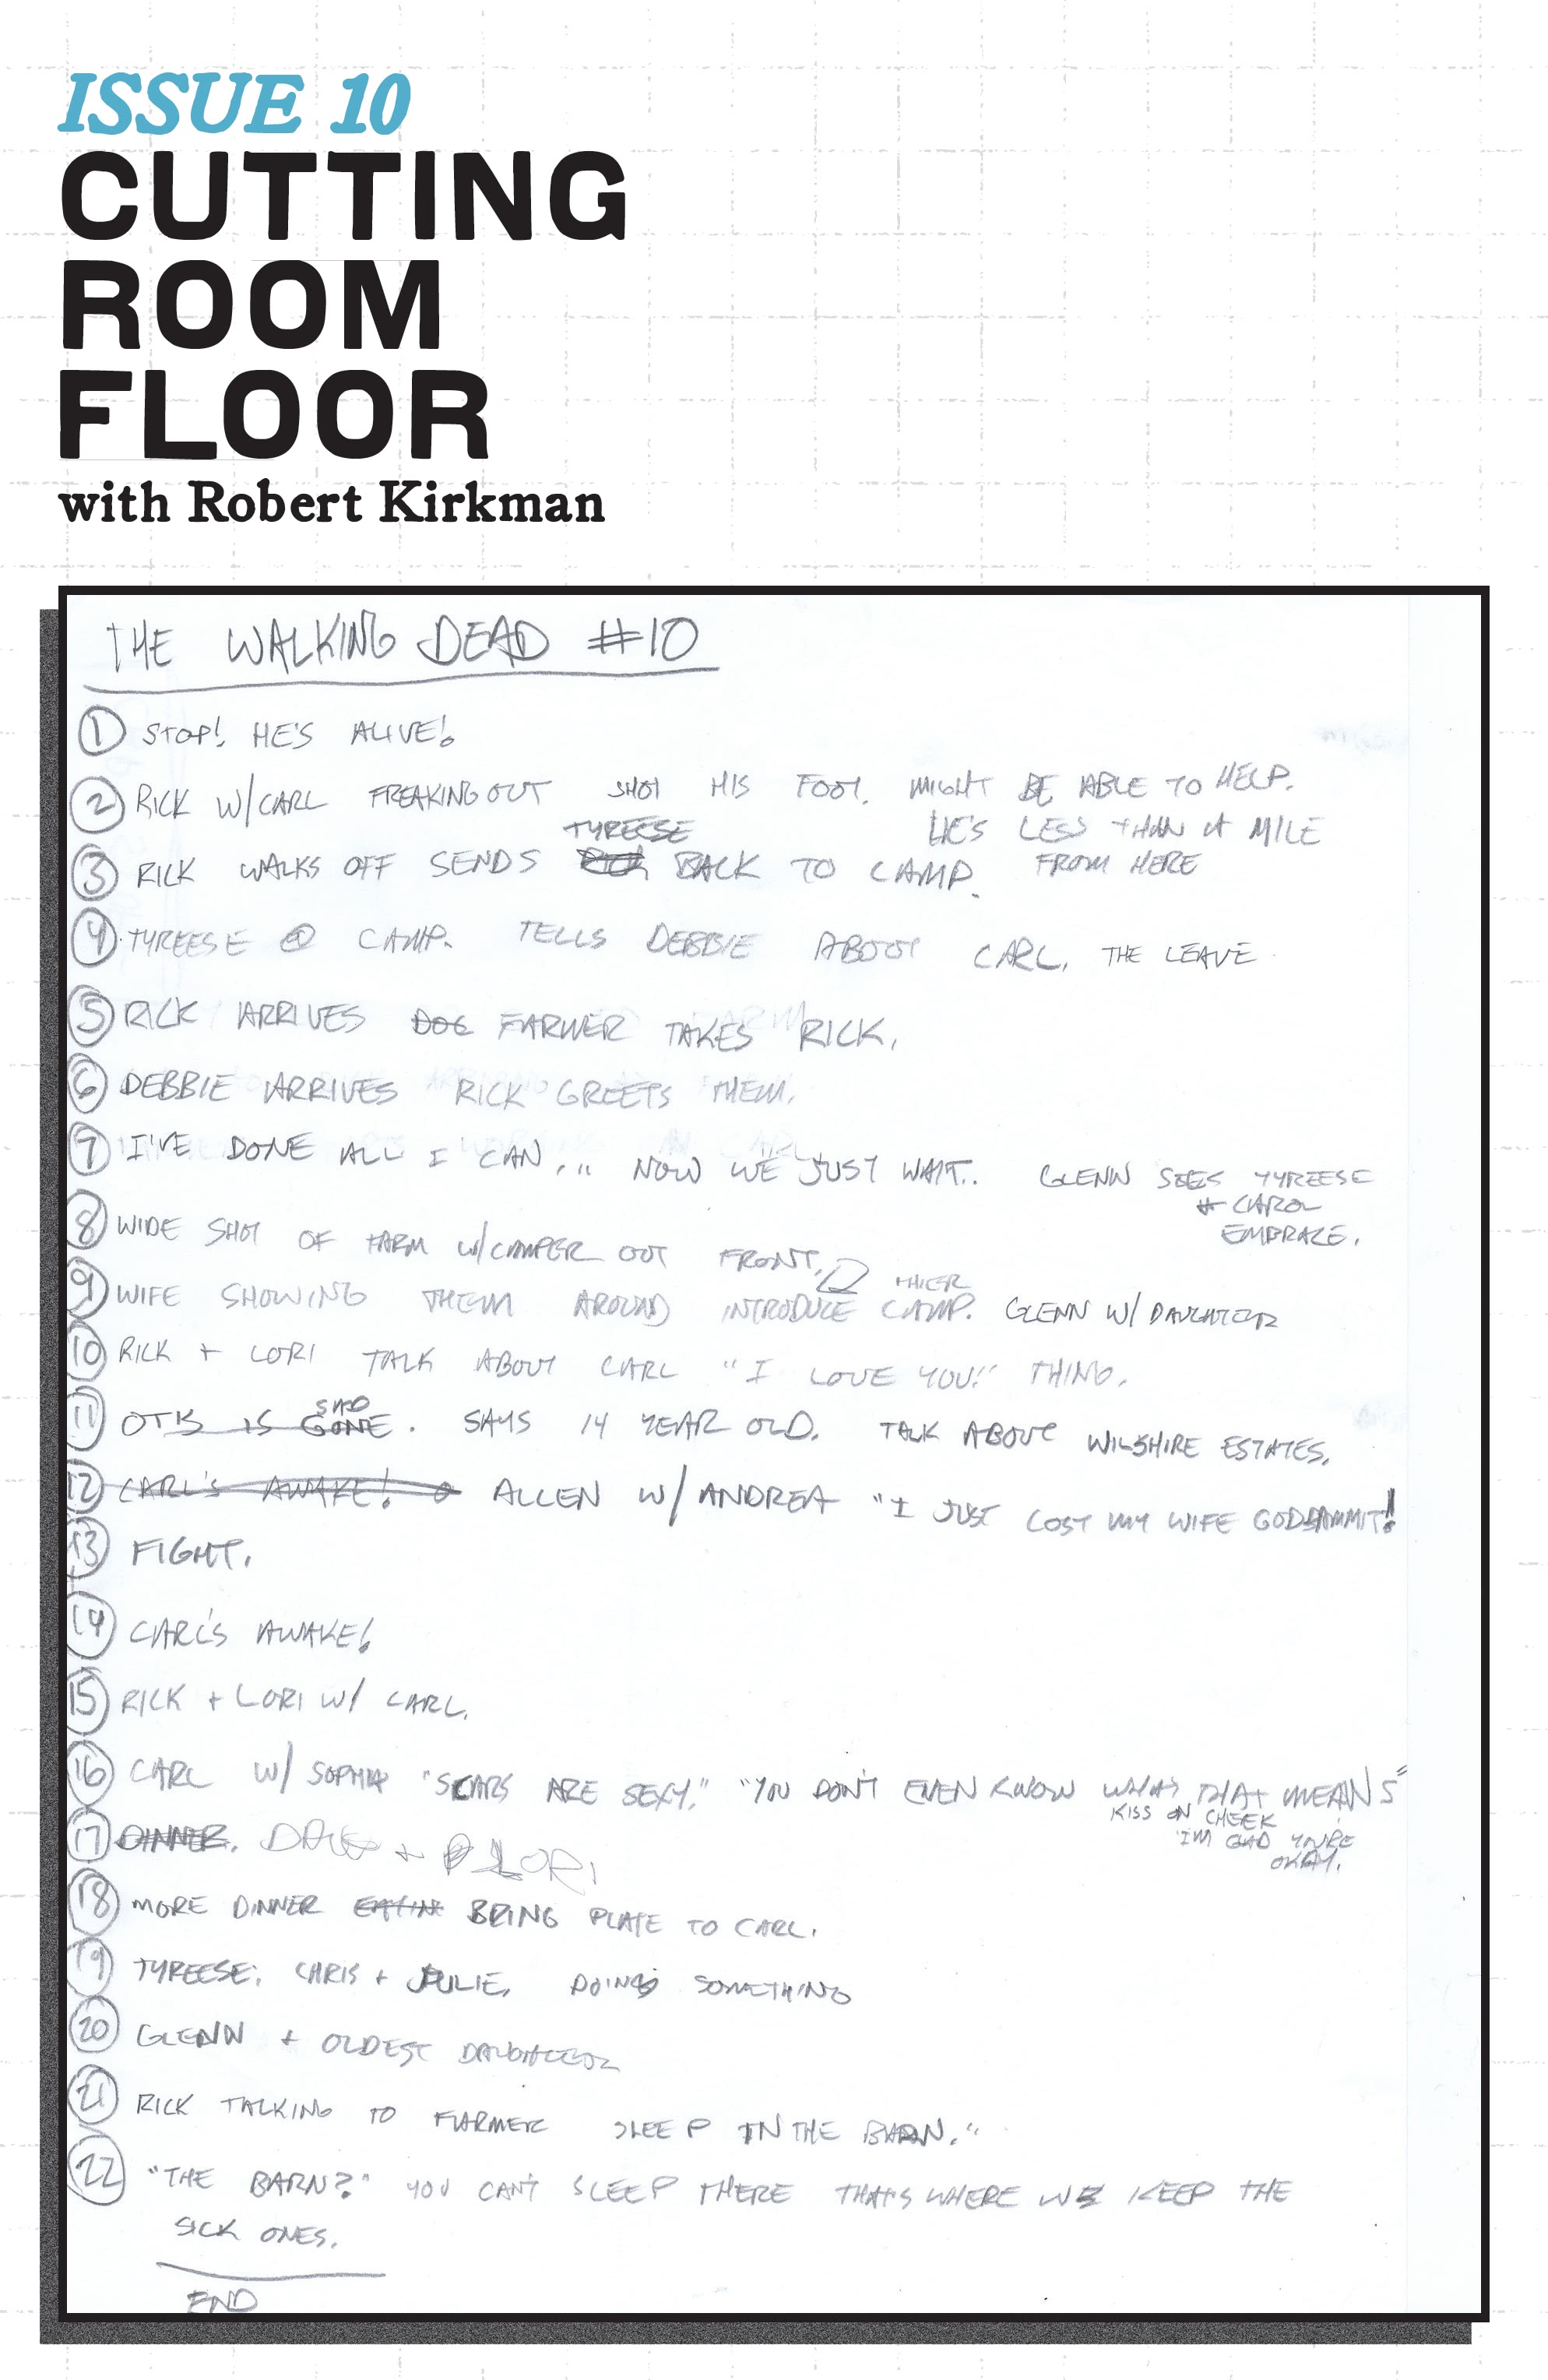 ISSUE 10
CUTTING
ROOM
FLOOR
with Robert Kirkman
THE WALKING DEAD #10
1 STOP! HE'S ALIVE!
2 RICK W/CARL FREAKING OUT SHOT HIS FOOT. MIGHT BE ABLE TO HELP.
HE'S LESS THAN A MILE
FROM HERE
TYREESE
3 RICK WALKS OFF SENDS BACK TO CAMP.
4 TYREESE @ CAMP. TELLS DEBBIE ABOUT CARL, THE LEAVE
5 RICK ARRIVES DOC FARMER TAKES RICK.
6 DEBBIE ARRIVES RICK GREETS THEM.
7 I'VE DONE ALL I CAN... NOW WE JUST WAIT.. GLENN SEES TYREESE
+ CAROL
EMBRACE.
8 WIDE SHOT OF FARM W/CAMPER OUT FRONT.
THIER
9 WIFE SHOWING THEM AROUND INTRODUCE CAMP. GLENN W/ DAUGHTER
10 RICK + LORI TALK ABOUT CARL "I LOVE YOU!" THING.
SAD
11 OTIS IS GONE. SAYS 14 YEAR OLD. TALK ABOUT WILSHIRE ESTATES.
12 CARL'S AWAKE! ALLEN W/ ANDREA "I JUST LOST MY WIFE GODDAMMIT!
13 FIGHT.
14 CARL'S AWAKE!
15 RICK + LORI W/ CARL.
16 CARL W/ SOPHIA "SCARS ARE SEXY." "YOU DON'T EVEN KNOW WHAT THAT MEANS"
KISS ON CHEEK
"I'M GLAD YOU'RE
OKAY.
17 DINNER. DALE + LORI
18 MORE DINNER EATING BRING PLATE TO CARL.
19 TYREESE, CHRIS + JULIE, DOING SOMETHING
20 GLENN + OLDEST DAUGHTER
21 RICK TALKING TO FARMER SLEEP IN THE BARN."
22 "THE BARN?" YOU CAN'T SLEEP THERE THAT'S WHERE WE KEEP THE
SICK ONES.
END